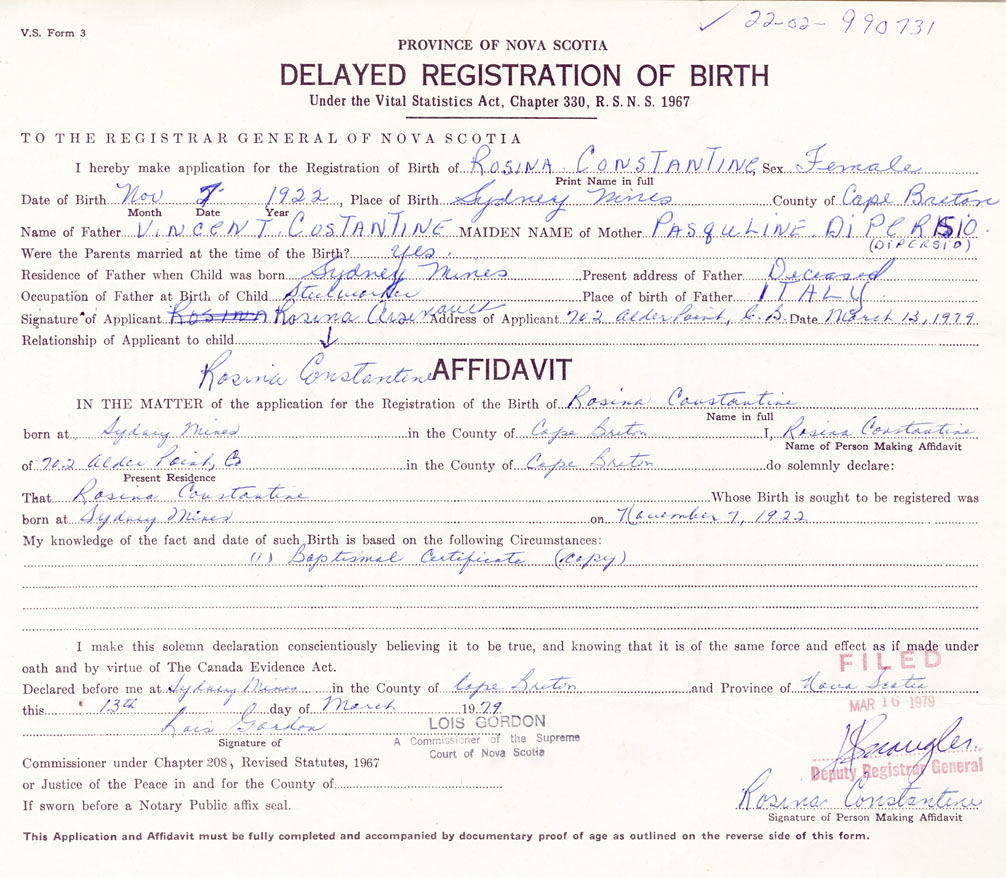 ✓ 22-02- 990731
V.S. Form 3
PROVINCE OF NOVA SCOTIA
DELAYED REGISTRATION OF BIRTH
Under the Vital Statistics Act, Chapter 330, R.S.N.S. 1967
TO THE REGISTRAR GENERAL OF NOVA SCOTIA
I hereby make application for the Registration of Birth of ROSINA CONSTANTINE, Sex Female
Print Name in full
Date of Birth Nov 7 1922, Place of Birth Sydney Mines County of Cape Breton
Month Date Year
Name of Father VINCENT COSTANTINE MAIDEN NAME of Mother PASQULINE DIPERSIO.
(DIPERSIO)
Were the Parents married at the time of the Birth? Yes.
Residence of Father when Child was born Sydney Mines Present address of Father Deceased
Occupation of Father at Birth of Child Steelworker Place of birth of Father ITALY
Signature of Applicant ROSINA Rosina Arsenault Address of Applicant 702 Alder Point, C.B. Date March 13, 1979
Relationship of Applicant to child
Rosina Constantine AFFIDAVIT
IN THE MATTER of the application for the Registration of the Birth of Rosina Constantine
Name in full
born at Sydney Mines in the County of Cape Breton I, Rosina Constantine
Name of Person Making Affidavit
of 702 Alder Point, Co in the County of Cape Breton do solemnly declare:
Present Residence
That Rosina Constantine Whose Birth is sought to be registered was
born at Sydney Mines on November 7, 1922
My knowledge of the fact and date of such Birth is based on the following Circumstances:
(1) Baptismal Certificate (copy)
I make this solemn declaration conscientiously believing it to be true, and knowing that it is of the same force and effect as if made under
oath and by virtue of The Canada Evidence Act.
FILED
Declared before me at Sydney Mines in the County of Cape Breton and Province of Nova Scotia
this 13th day of March 1979
MAR 16 1979
Lois Gordon
LOIS GORDON
A Commissioner of the Supreme
Court of Nova Scotia
Signature of
Commissioner under Chapter 208, Revised Statutes, 1967
Deputy Registrar General
or Justice of the Peace in and for the County of
Rosina Constantine
If sworn before a Notary Public affix seal.
Signature of Person Making Affidavit
This Application and Affidavit must be fully completed and accompanied by documentary proof of age as outlined on the reverse side of this form.